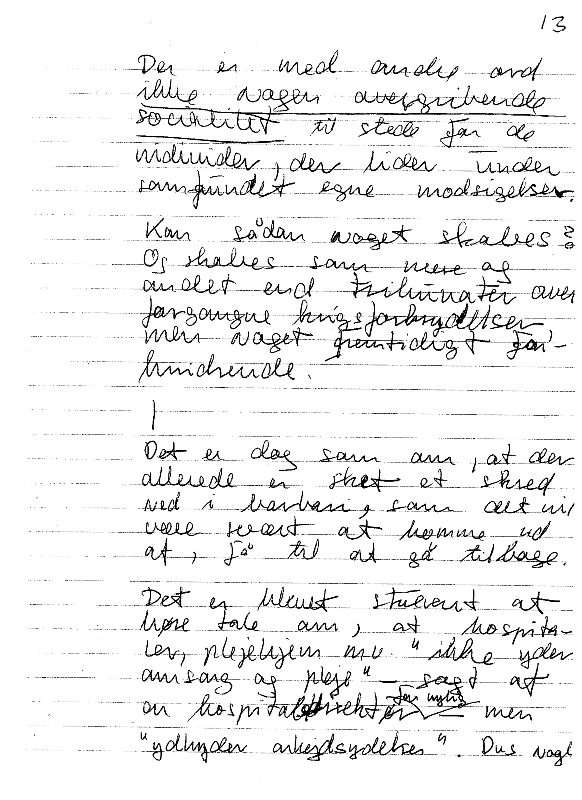 13
Der er med andre ord
ikke nogen overgribende
socialitet til stede for de
individer, der lider under
samfundet egne modsigelser.
Kan sådan noget skabes?
Og skabes som mere og
andet end tribunater over
forgangne krigsforbrydelser
men noget fremtidigt for-
hindrende.
Det er dog som om, at der
allerede er sket et skred
ned i barbari, som det vil
være svært at komme ud
af, få til at gå tilbage.
Det er blevet stuerent at
høre tale om, at hospita-
ler, plejehjem mv "ikke yder
omsorg og pleje" – sagt af
en hospitalsdirektør for nylig – men
"udbyder arbejdsydelser". Dvs nogl